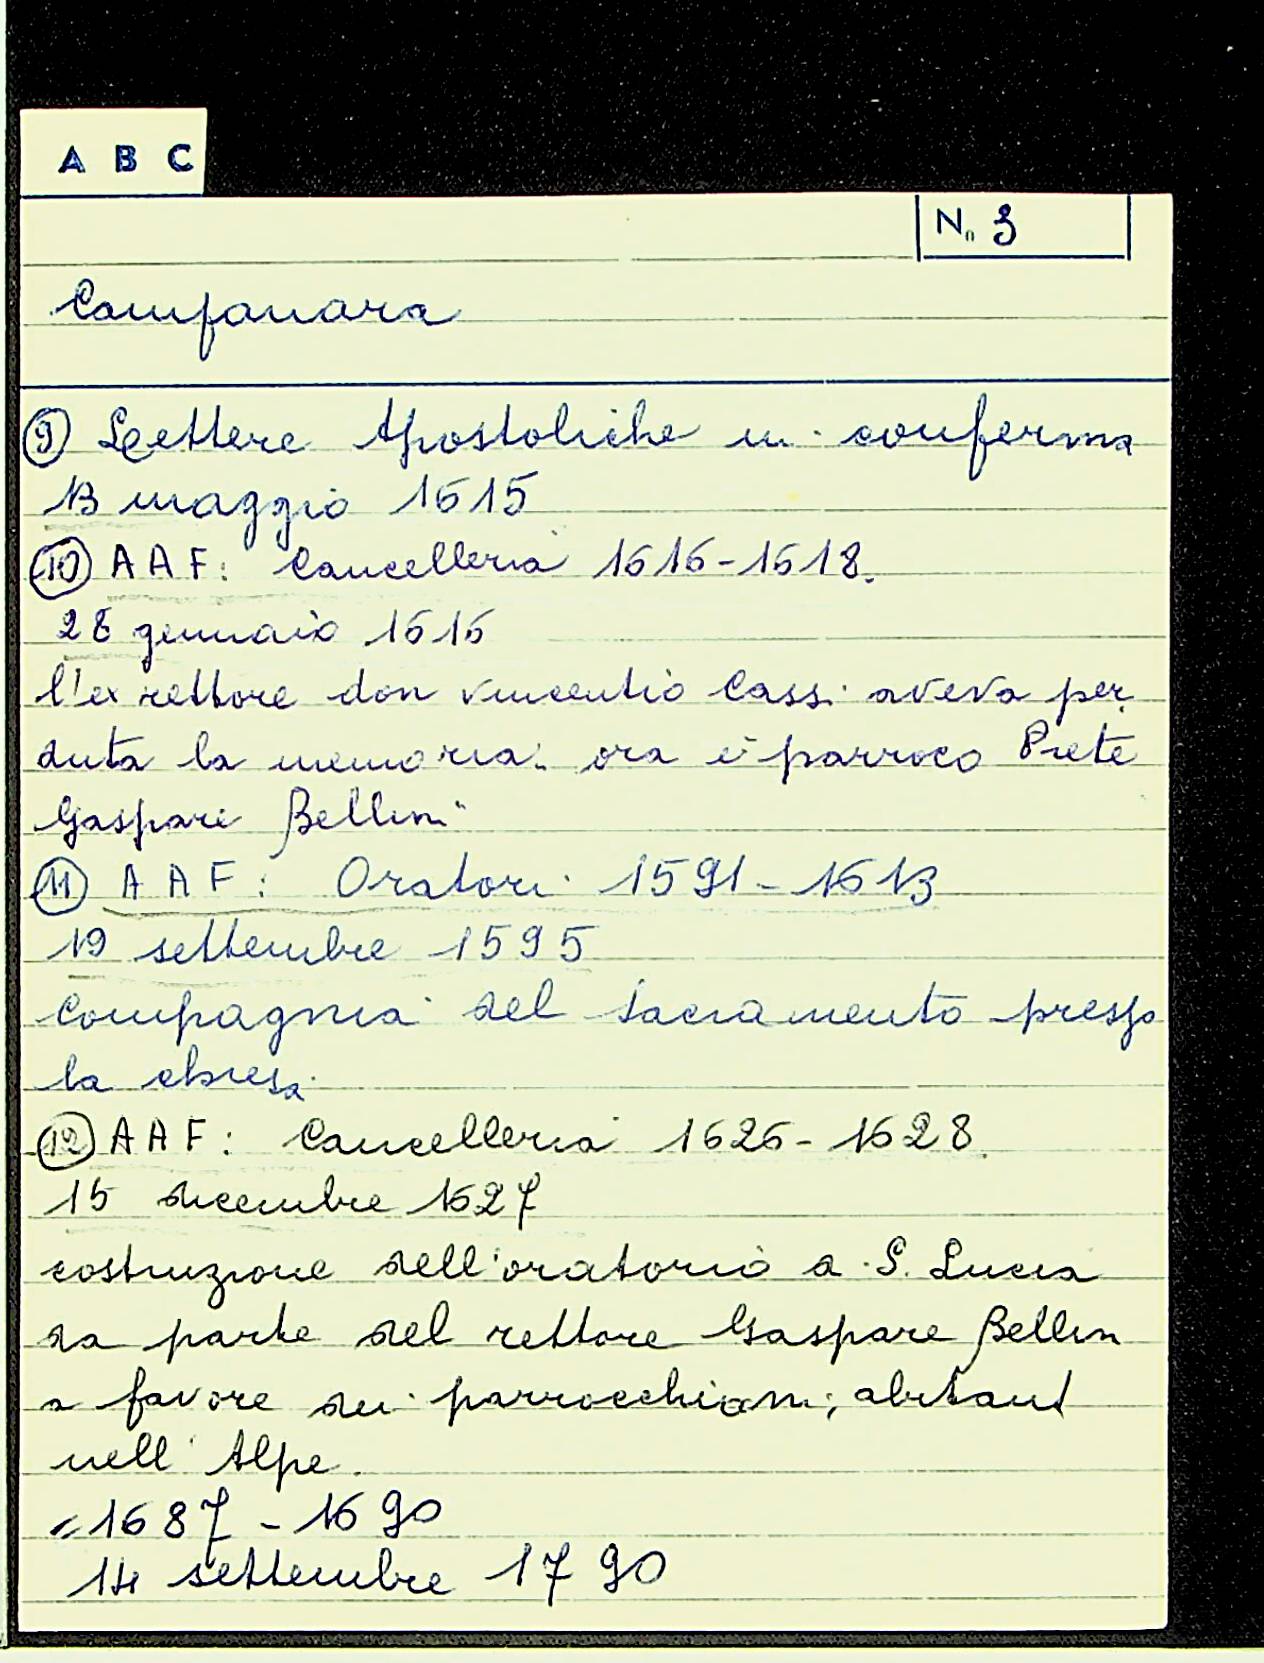 A B C
N. 3
Campanara
9 Lettere Apostoliche in conferma
13 maggio 1615
10 AAF: Cancelleria 1616-1618.
28 gennaio 1616
l'ex rettore don Vincentio Cassi aveva per
duta la memoria: ora è parroco Prete
Gaspare Bellini
11 AAF: Oratori 1591-1613
19 settembre 1595
Compagnia del Sacramento presso
la chiesa.
12 AAF: Cancelleria 1626-1628.
15 dicembre 1627
costruzione dell'oratorio a S. Lucia
da parte del rettore Gaspare Bellini
a favore dei parrocchiani; abitanti
nell'Alpe.
1687-1690
14 settembre 1790